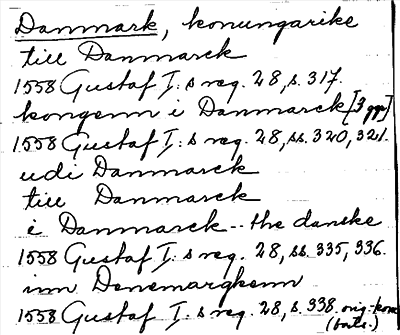 Danmark, konungarike
till Danmarck
1558 Gustaf I:s reg. 28, s. 317.
kongenn i Danmarck [3 ggr]
1558 Gustaf I:s reg. 28, ss. 320, 321.
udi Danmarck
till Danmarck
i Danmarck -- the danske
1558 Gustaf I:s reg. 28, ss. 335, 336.
inn Denemargkenn
1558 Gustaf I:s reg. 28, s. 338. orig.-konc